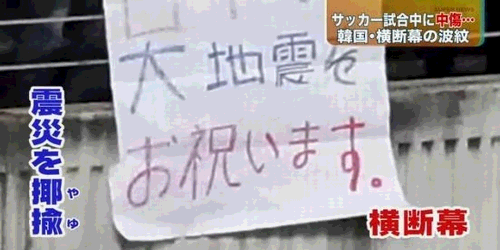 サッカー試合中に中傷…
韓国・横断幕の波紋
大地震を
お祝います。
震災を揶揄
やゆ
横断幕